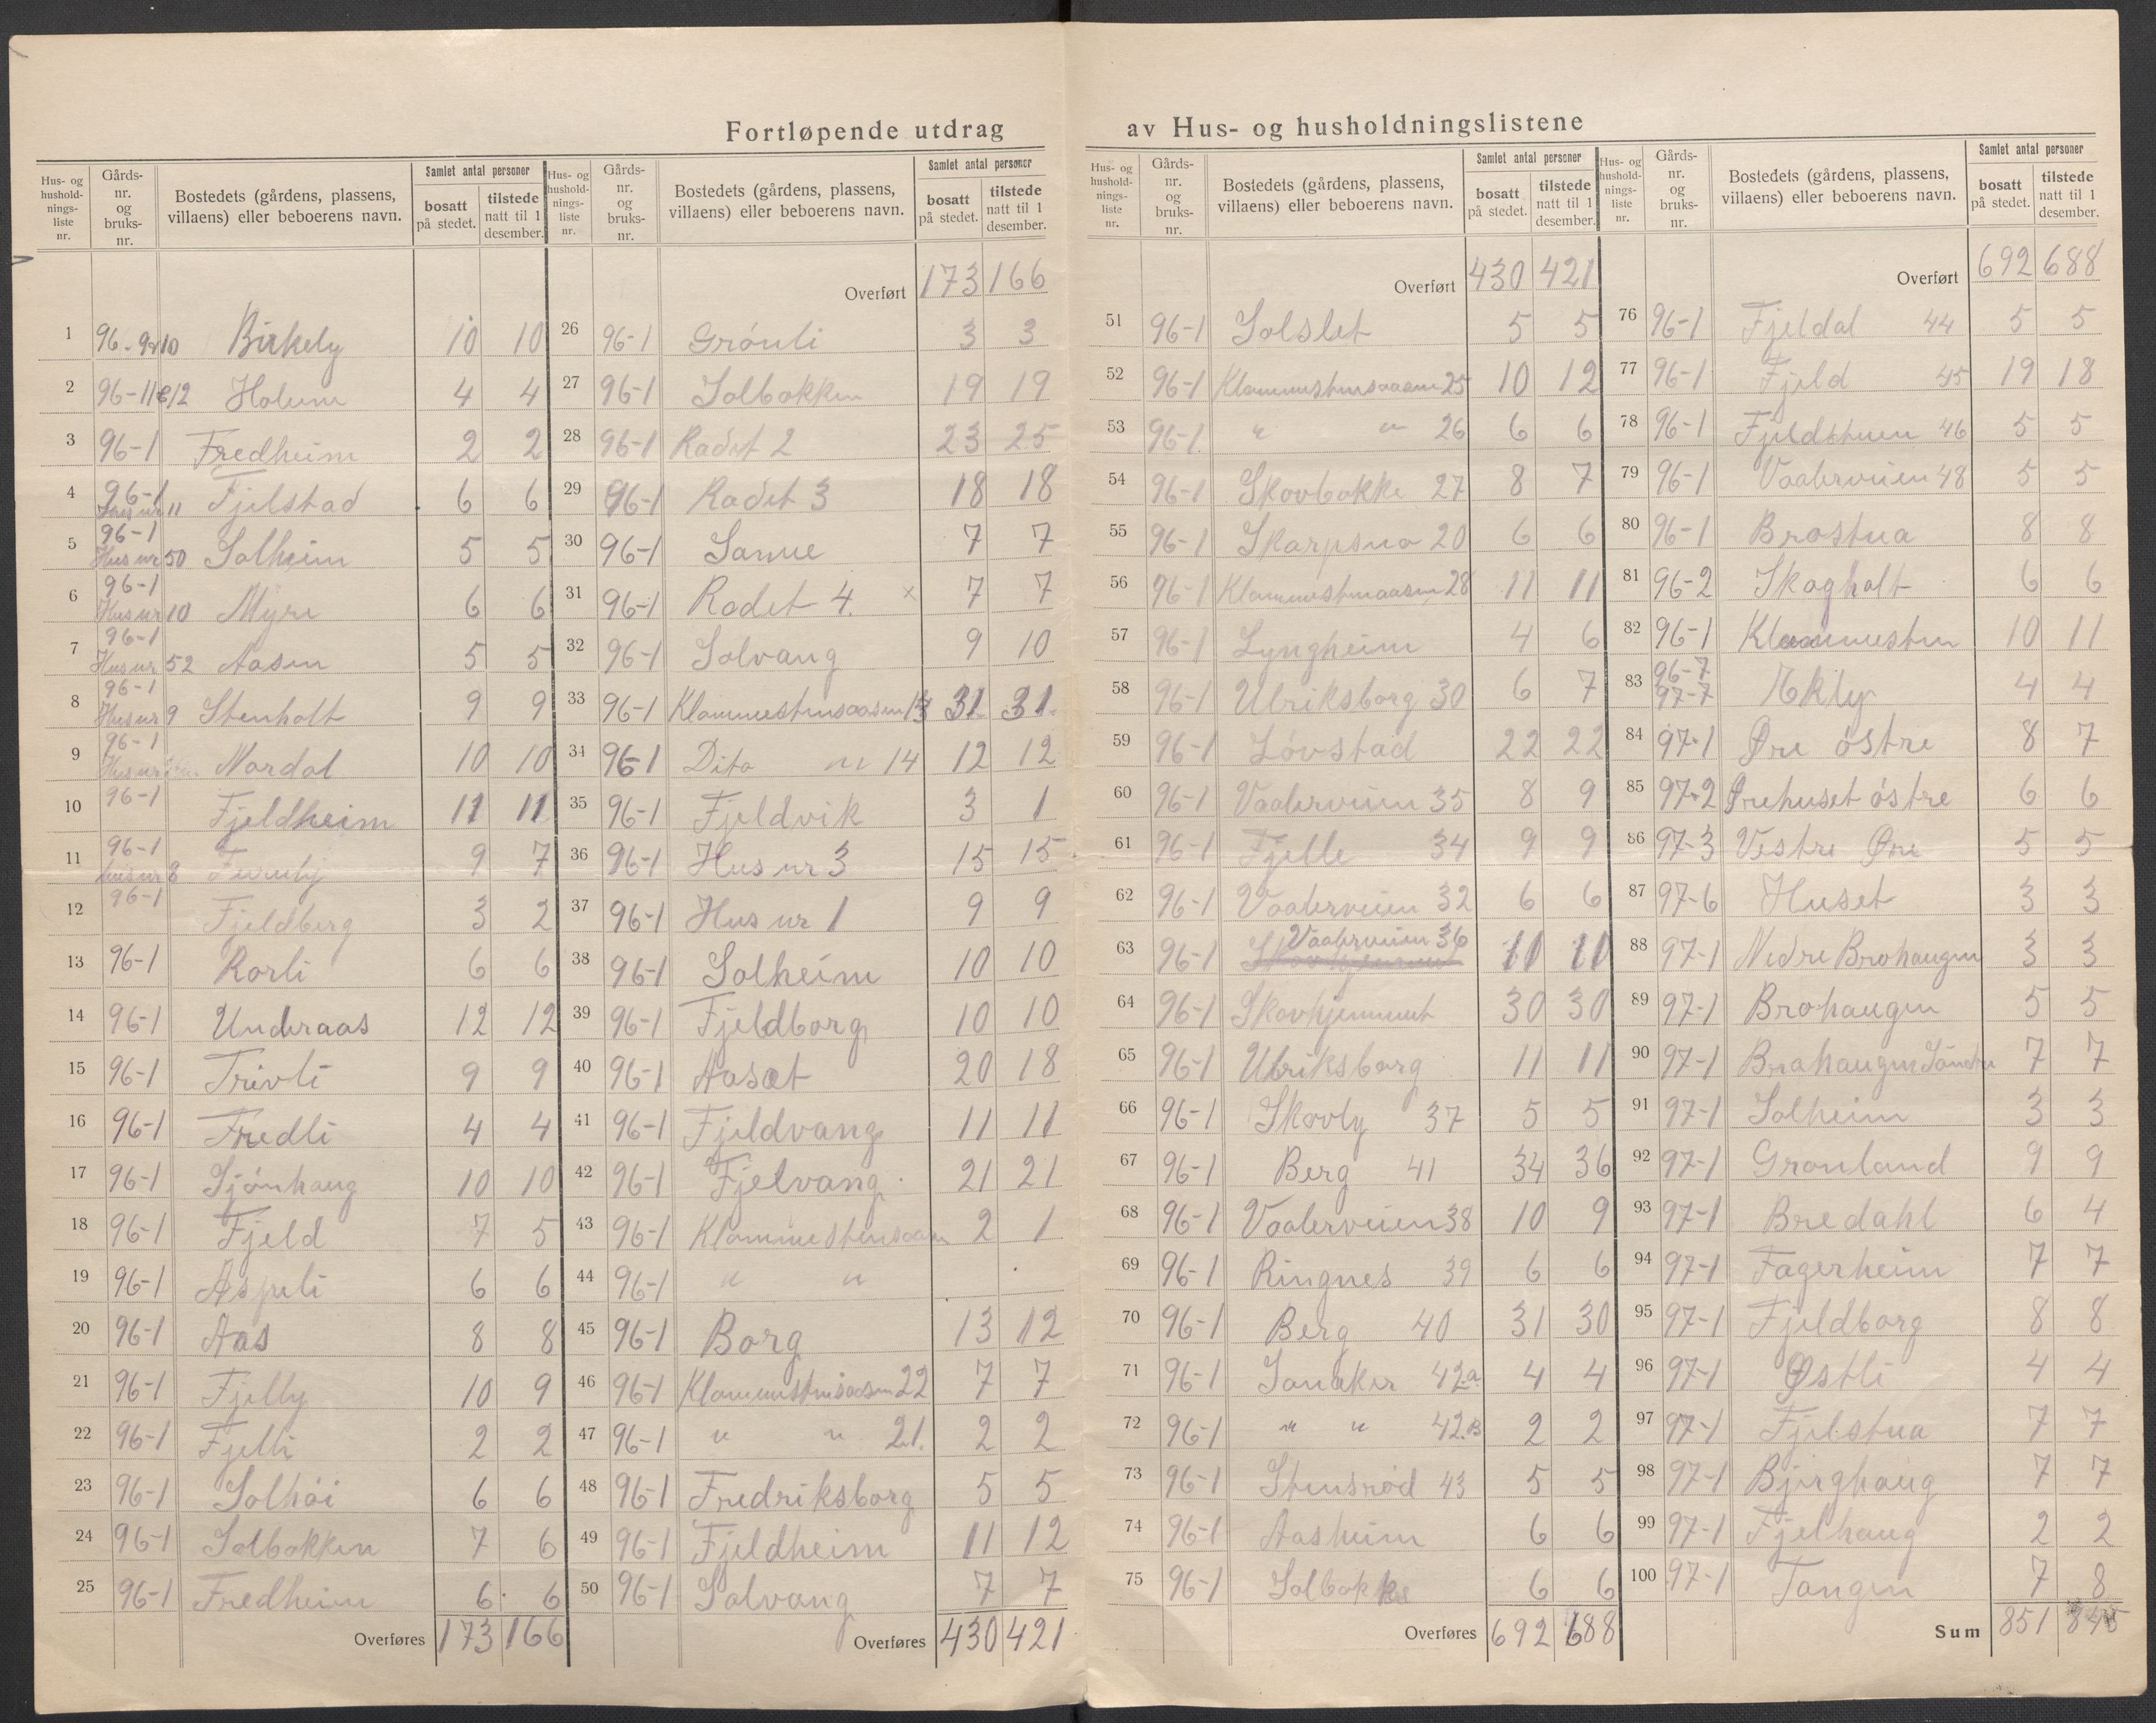 Fortløpende utdrag av Hus- og husholdningslistene
Hus- og hushold-nings-liste nr. Gårds-nr. og bruks-nr. Bostedets (gårdens, plassens, villaens) eller beboerens navn. Samlet antal personer bosatt på stedet. tilstede natt til 1 desember.
1 96-9&10 Birkely 10 10
2 96-11&12 Holum 4 4
3 96-1 Fredheim 2 2
4 96-1 Hus nr 11 Fjelstad 6 6
5 96-1 Hus nr 50 Solheim 5 5
6 96-1 Hus nr 10 Myre 6 6
7 96-1 Hus nr 52 Aasen 5 5
8 96-1 Hus nr 9 Stenholt 9 9
9 96-1 Hus nr Nordal 10 10
10 96-1 Fjeldheim 11 11
11 96-1 hus nr 8 Furuly 9 7
12 96-1 Fjeldberg 3 2
13 96-1 Rorli 6 6
14 96-1 Underaas 12 12
15 96-1 Trivli 9 9
16 96-1 Fredli 4 4
17 96-1 Sjónhaug 10 10
18 96-1 Fjeld 7 5
19 96-1 Aspeli 6 6
20 96-1 Aas 8 8
21 96-1 Fjelly 10 9
22 96-1 Fjelli 2 2
23 96-1 Solhói 6 6
24 96-1 Solbakken 7 6
25 96-1 Fredheim 6 6
Overføres 173 166
Hus- og hushold-nings-liste nr. Gårds-nr. og bruks-nr. Bostedets (gårdens, plassens, villaens) eller beboerens navn. Samlet antal personer bosatt på stedet. tilstede natt til 1 desember.
Overført 173 166
26 96-1 Grónli 3 3
27 96-1 Solbakken 19 19
28 96-1 Radet 2 23 25
29 96-1 Radet 3 18 18
30 96-1 Sanne 7 7
31 96-1 Radet 4. x 7 7
32 96-1 Solvang 9 10
33 96-1 Klommestensaasen 13 31 31
34 96-1 Dito " 14 12 12
35 96-1 Fjeldvik 3 1
36 96-1 Hus nr 3 15 15
37 96-1 Hus nr 1 9 9
38 96-1 Solheim 10 10
39 96-1 Fjeldborg 10 10
40 96-1 Aaset 20 18
41 96-1 Fjeldvang 11 11
42 96-1 Fjelvang 21 21
43 96-1 Klommestensaasen 2 1
44 96-1 " "
45 96-1 Borg 13 12
46 96-1 Klommestensaasen 22 7 7
47 96-1 " " 21. 2 2
48 96-1 Fredriksborg 5 5
49 96-1 Fjeldheim 11 12
50 96-1 Solvang 7 7
Overføres 430 421
Hus- og hushold-nings-liste nr. Gårds-nr. og bruks-nr. Bostedets (gårdens, plassens, villaens) eller beboerens navn. Samlet antal personer bosatt på stedet. tilstede natt til 1 desember.
Overført 430 421
51 96-1 Solslet 5 5
52 96-1 Klommestensaasen 25 10 12
53 96-1 " " 26 6 6
54 96-1 Skovbakke 27 8 7
55 96-1 Skarpsno 20 6 6
56 96-1 Klommestenaasen 28 11 11
57 96-1 Lyngheim 4 6
58 96-1 Ulriksborg 30 6 7
59 96-1 Lóvstad 22 22
60 96-1 Vaalerveien 35 8 9
61 96-1 Fjelle 34 9 9
62 96-1 Vaalerveien 32 6 6
63 96-1 Vaalerveien 36 11 11
64 96-1 Skovhjemmet 30 30
65 96-1 Ulriksborg 11 11
66 96-1 Skovly 37 5 5
67 96-1 Berg 41 34 36
68 96-1 Vaalerveien 38 10 9
69 96-1 Ringnes 39 6 6
70 96-1 Berg 40 31 30
71 96-1 Sonaker 42.a. 4 4
72 96-1 " " 42.B 2 2
73 96-1 Stensród 43 5 5
74 96-1 Aasheim 6 6
75 96-1 Solbakke 6 6
Overføres 692 688
Hus- og hushold-nings-liste nr. Gårds-nr. og bruks-nr. Bostedets (gårdens, plassens, villaens) eller beboerens navn. Samlet antal personer bosatt på stedet. tilstede natt til 1 desember.
Overført 692 688
76 96-1 Fjeldal 44 5 5
77 96-1 Fjeld 45 19 18
78 96-1 Fjeldstuen 46 5 5
79 96-1 Vaalerveien 48 5 5
80 96-1 Brostua 8 8
81 96-2 Skogholt 6 6
82 96-1 Klommesten 10 11
83 96-7 97-7 Ekly 4 4
84 97-1 Øre óstre 8 7
85 97-2 Ørehuset óstre 6 6
86 97-3 Vestre Øre 5 5
87 97-6 Huset 3 3
88 97-1 Nedre Brohaugen 3 3
89 97-1 Brohaugen 5 5
90 97-1 Brohaugen Sóndre 7 7
91 97-1 Solheim 3 3
92 97-1 Gronland 9 9
93 97-1 Bredahl 6 4
94 97-1 Fagerheim 7 7
95 97-1 Fjeldborg 8 8
96 97-1 Østli 4 4
97 97-1 Fjelstua 7 7
98 97-1 Bjerghaug 7 7
99 97-1 Fjelhaug 2 2
100 97-1 Tangen 7 8
Sum 851 845